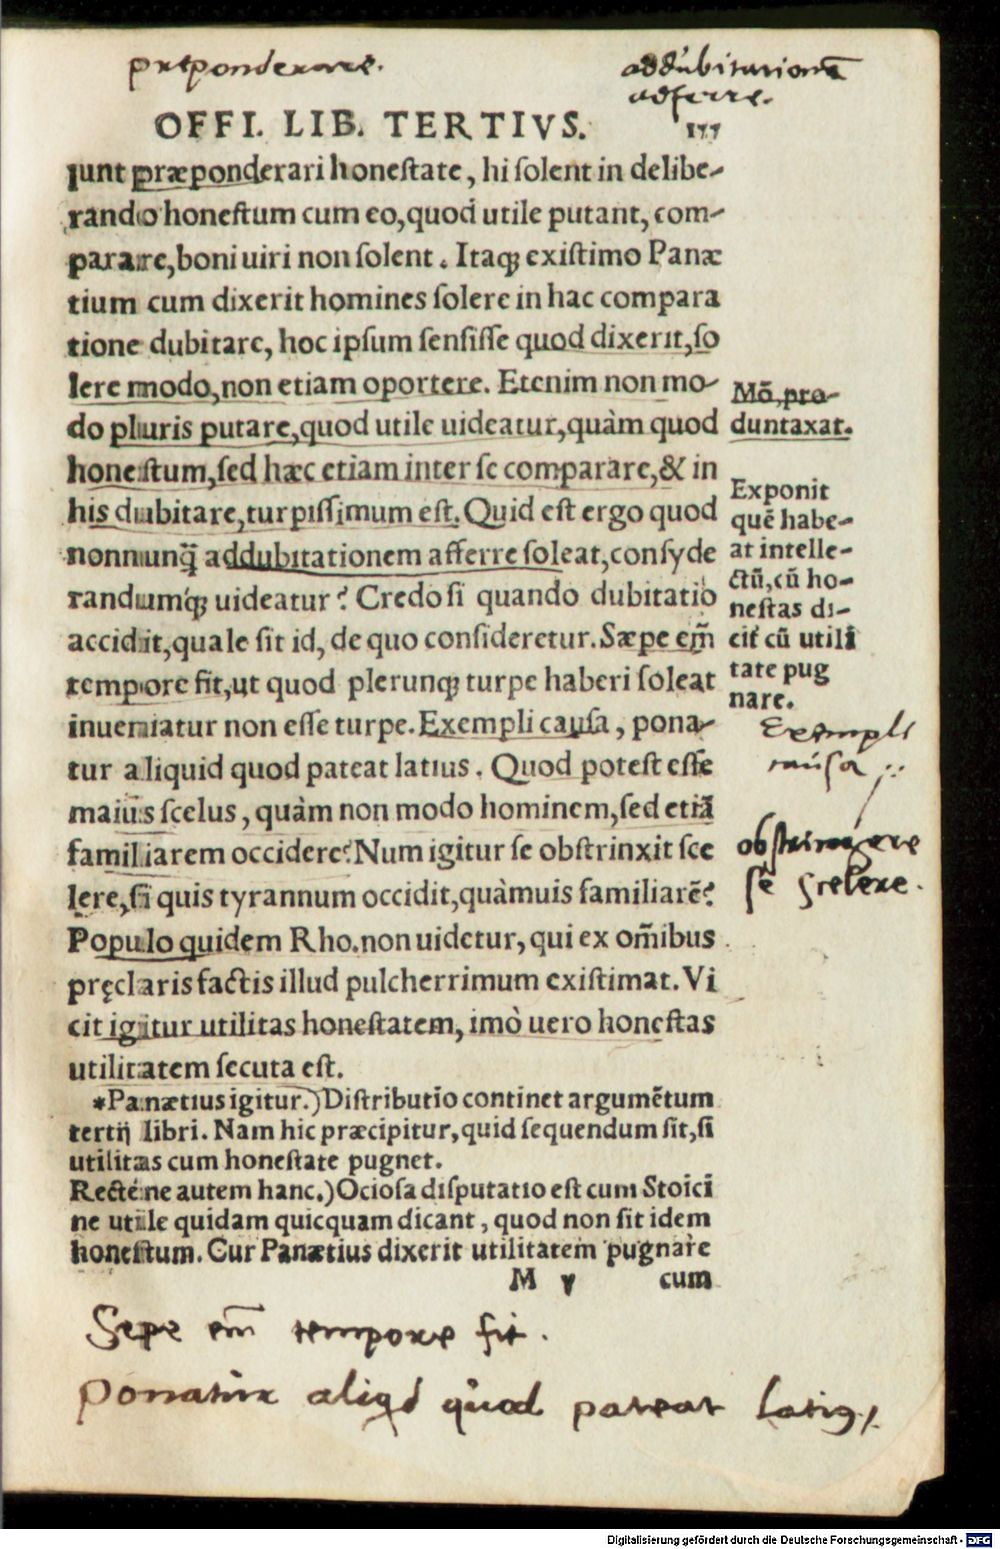 præponderare.
addubitationē
adferre.
OFFI. LIB. TERTIVS.
ſunt præponderari honeſtate, hi ſolent in delibe-
rando honeſtum cum eo, quod utile putant, com-
parare, boni uiri non ſolent. Itaqꝫ exiſtimo Panæ
tium cum dixerit homines ſolere in hac compara
tione dubitare, hoc ipſum ſenſiſſe quod dixerit, ſo
lere modo, non etiam oportere. Etenim non mo-
do pluris putare, quod utile uideatur, quàm quod
honeſtum, ſed hæc etiam inter ſe comparare, & in
his dubitare, turpiſſimum eſt. Quid eſt ergo quod
nonnunq̃ addubitationem afferre ſoleat, conſyde
randumq́ꝫ uideatur? Credo ſi quando dubitatio
accidit, quale ſit id, de quo conſideretur. Sæpe em̃
tempore fit, ut quod plerunqꝫ turpe haberi ſoleat
inueniatur non eſſe turpe. Exempli cauſa, pona-
tur aliquid quod pateat latius. Quod poteſt eſſe
maius ſcelus, quàm non modo hominem, ſed etiã
familiarem occidere? Num igitur ſe obſtrinxit ſce
lere, ſi quis tyrannum occidit, quàmuis familiarē?
Populo quidem Rho. non uidetur, qui ex om̃ibus
pręclaris factis illud pulcherrimum exiſtimat. Vi
cit igitur utilitas honeſtatem, imò uero honeſtas
utilitatem ſecuta eſt.
*Panætius igitur.) Diſtributio continet argumētum
tertij libri. Nam hic præcipitur, quid ſequendum ſit, ſi
utilitas cum honeſtate pugnet.
Recténe autem hanc.) Ocioſa diſputatio eſt cum Stoici
ne utile quidam quicquam dicant, quod non ſit idem
honeſtum. Cur Panætius dixerit utilitatem pugnare
M v cum
Mō, pro-
duntaxat.
Exponit
quē habe-
at intelle-
ctũ, cũ ho-
neſtas di-
cit cũ utili
tate pug
nare.
Exempli
cauſa
obſtringere
ſe ſcelere.
Sepe em̃ tempore fit.
ponatur aliqd quod pateat latiꝰ
Digitalisierung gefördert durch die Deutsche Forschungsgemeinschaft - DFG